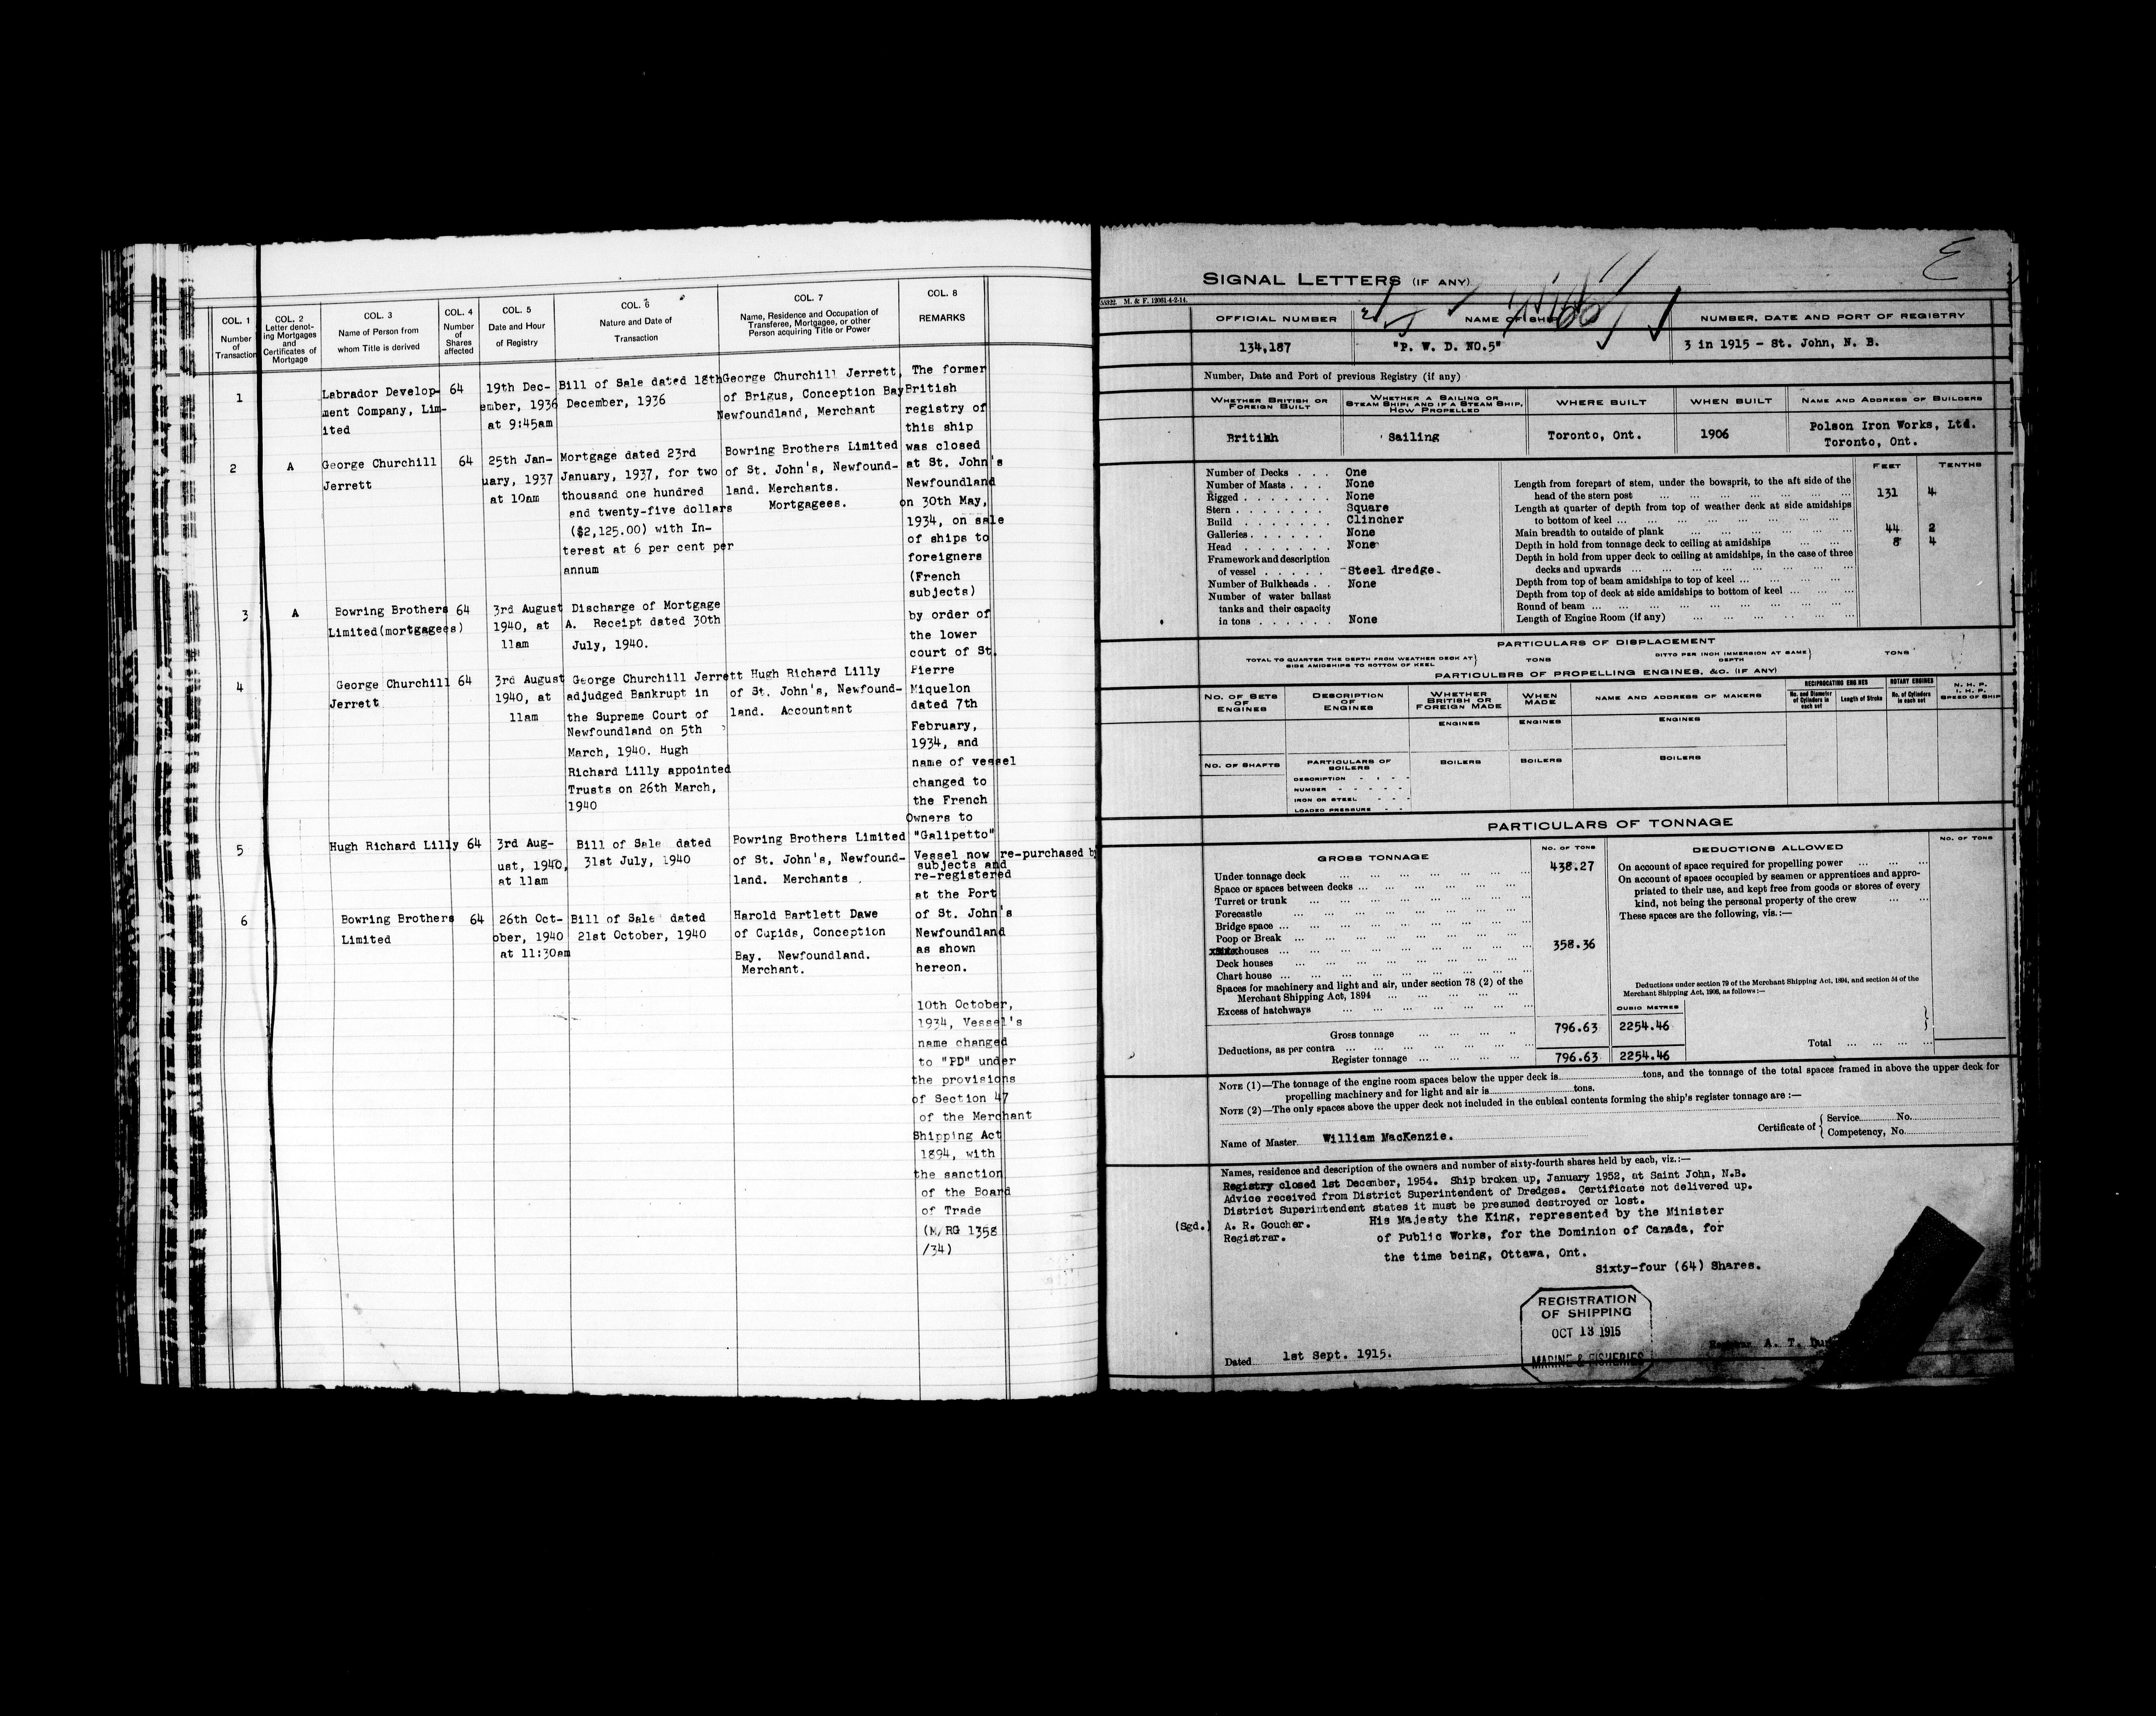 COL. 1
Number
of
Transaction
COL. 2
Letter denot-
ing Mortgages
and
Certificates of
Mortgage
COL. 3
Name of Person from
whom Title is derived
COL. 4
Number
of
Shares
affected
COL. 5
Date and Hour
of Registry
COL. 6
Nature and Date of
Transaction
COL. 7
Name, Residence and Occupation of
Transferee, Mortgagee, or other
Person acquiring Title or Power
COL. 8
REMARKS
1
Labrador Develop-
ment Company, Lim-
ited
64
19th Dec-
ember, 1936
at 9:45am
Bill of Sale dated 18th
December, 1936
George Churchill Jerrett,
of Brigus, Conception Bay
Newfoundland, Merchant
2
A
George Churchill
Jerrett
64
25th Jan-
uary, 1937
at 10am
Mortgage dated 23rd
January, 1937, for two
thousand one hundred
and twenty-five dollars
($2,125.00) with In-
terest at 6 per cent per
annum
Bowring Brothers Limited
of St. John's, Newfound-
land. Merchants.
Mortgagees.
3
A
Bowring Brothers
Limited(mortgagees)
64
3rd August
1940, at
11am
Discharge of Mortgage
A. Receipt dated 30th
July, 1940.
4
George Churchill
Jerrett
64
3rd August
1940, at
11am
George Churchill Jerrett
adjudged Bankrupt in
the Supreme Court of
Newfoundland on 5th
March, 1940. Hugh
Richard Lilly appointed
Trusts on 26th March,
1940
Hugh Richard Lilly
of St. John's, Newfound-
land. Accountant
5
Hugh Richard Lilly
64
3rd Aug-
ust, 1940,
at 11am
Bill of Sale dated
31st July, 1940
Bowring Brothers Limited
of St. John's, Newfound-
land. Merchants
6
Bowring Brothers
Limited
64
26th Oct-
ober, 1940
at 11:30am
Bill of Sale dated
21st October, 1940
Harold Bartlett Dawe
of Cupids, Conception
Bay. Newfoundland.
Merchant.
The former
British
registry of
this ship
was closed
at St. John's
Newfoundland
on 30th May,
1934, on sale
of ships to
foreigners
(French
subjects)
by order of
the lower
court of St.
Pierre
Miquelon
dated 7th
February,
1934, and
name of vessel
changed to
the French
Owners to
"Galipetto"
Vessel now re-purchased by
subjects and
re-registered
at the Port
of St. John's
Newfoundland
as shown
hereon.
10th October,
1934, Vessel's
name changed
to "PD" under
the provisions
of Section 47
of the Merchant
Shipping Act
1894, with
the sanction
of the Board
of Trade
(M/RG 1358
/34)
E
SIGNAL LETTERS (IF ANY)
M. & F. 12061-4-2-14.
OFFICIAL NUMBER
NAME OF SHIP
NUMBER, DATE AND PORT OF REGISTRY
134,187
"P. W. D. NO.5"
3 in 1915 - St. John, N. B.
Number, Date and Port of previous Registry (if any)
WHETHER BRITISH OR
FOREIGN BUILT
WHETHER A SAILING OR
STEAM SHIP; AND IF A STEAM SHIP,
HOW PROPELLED
WHERE BUILT
WHEN BUILT
NAME AND ADDRESS OF BUILDERS
British
Sailing
Toronto, Ont.
1906
Polson Iron Works, Ltd.
Toronto, Ont.
FEET
TENTHS
Number of Decks . . . One
Number of Masts . . . None
Rigged . . . None
Stern . . . Square
Build . . . Clincher
Galleries . . . None
Head . . . None
Framework and description
of vessel . . . Steel dredge.
Number of Bulkheads . . None
Number of water ballast
tanks and their capacity
in tons . . . None
Length from forepart of stem, under the bowsprit, to the aft side of the
head of the stern post ... 131 4
Length at quarter of depth from top of weather deck at side amidships
to bottom of keel ...
Main breadth to outside of plank ... 44 2
Depth in hold from tonnage deck to ceiling at amidships ... 8 4
Depth in hold from upper deck to ceiling at amidships, in the case of three
decks and upwards ...
Depth from top of beam amidships to top of keel ...
Depth from top of deck at side amidships to bottom of keel ...
Round of beam ...
Length of Engine Room (if any) ...
PARTICULARS OF DISPLACEMENT
TOTAL TO QUARTER THE DEPTH FROM WEATHER DECK AT
SIDE AMIDSHIPS TO BOTTOM OF KEEL
TONS
DITTO PER INCH IMMERSION AT SAME
DEPTH
TONS
PARTICULARS OF PROPELLING ENGINES, &C. (IF ANY)
NO. OF SETS
OF
ENGINES
DESCRIPTION
OF
ENGINES
WHETHER
BRITISH OR
FOREIGN MADE
WHEN
MADE
NAME AND ADDRESS OF MAKERS
RECIPROCATING ENGINES
No. and Diameter
of Cylinders in
each set
Length of Stroke
ROTARY ENGINES
No. of Cylinders
in each set
N. H. P.
I. H. P.
SPEED OF SHIP
ENGINES
ENGINES
ENGINES
NO. OF SHAFTS
PARTICULARS OF
BOILERS
BOILERS
BOILERS
BOILERS
DESCRIPTION
NUMBER
IRON OR STEEL
LOADED PRESSURE
PARTICULARS OF TONNAGE
GROSS TONNAGE
NO. OF TONS
DEDUCTIONS ALLOWED
NO. OF TONS
Under tonnage deck ... 438.27
Space or spaces between decks ...
Turret or trunk ...
Forecastle ...
Bridge space ...
Poop or Break ...
houses ... 358.36
Deck houses ...
Chart house ...
Spaces for machinery and light and air, under section 78 (2) of the
Merchant Shipping Act, 1894 ...
Excess of hatchways ...
On account of space required for propelling power ...
On account of spaces occupied by seamen or apprentices and appro-
priated to their use, and kept free from goods or stores of every
kind, not being the personal property of the crew ...
These spaces are the following, viz.:—
Deductions under section 79 of the Merchant Shipping Act, 1894, and section 54 of the
Merchant Shipping Act, 1906, as follows:—
CUBIC METRES
Gross tonnage ... 796.63 2254.46
Deductions, as per contra ...
Total ...
Register tonnage ... 796.63 2254.46
NOTE (1)—The tonnage of the engine room spaces below the upper deck is tons, and the tonnage of the total spaces framed in above the upper deck for
propelling machinery and for light and air is tons.
NOTE (2)—The only spaces above the upper deck not included in the cubical contents forming the ship's register tonnage are :—
Name of Master William MacKenzie.
Certificate of
Service No.
Competency, No.
Names, residence and description of the owners and number of sixty-fourth shares held by each, viz.:—
Registry closed 1st December, 1954. Ship broken up, January 1952, at Saint John, N.B.
Advice received from District Superintendent of Dredges. Certificate not delivered up.
District Superintendent states it must be presumed destroyed or lost.
(Sgd.) A. R. Goucher.
Registrar.
His Majesty the King, represented by the Minister
of Public Works, for the Dominion of Canada, for
the time being, Ottawa, Ont.
Sixty-four (64) Shares.
REGISTRATION
OF SHIPPING
OCT 13 1915
MARINE & FISHERIES
Dated 1st Sept. 1915.
A. T.